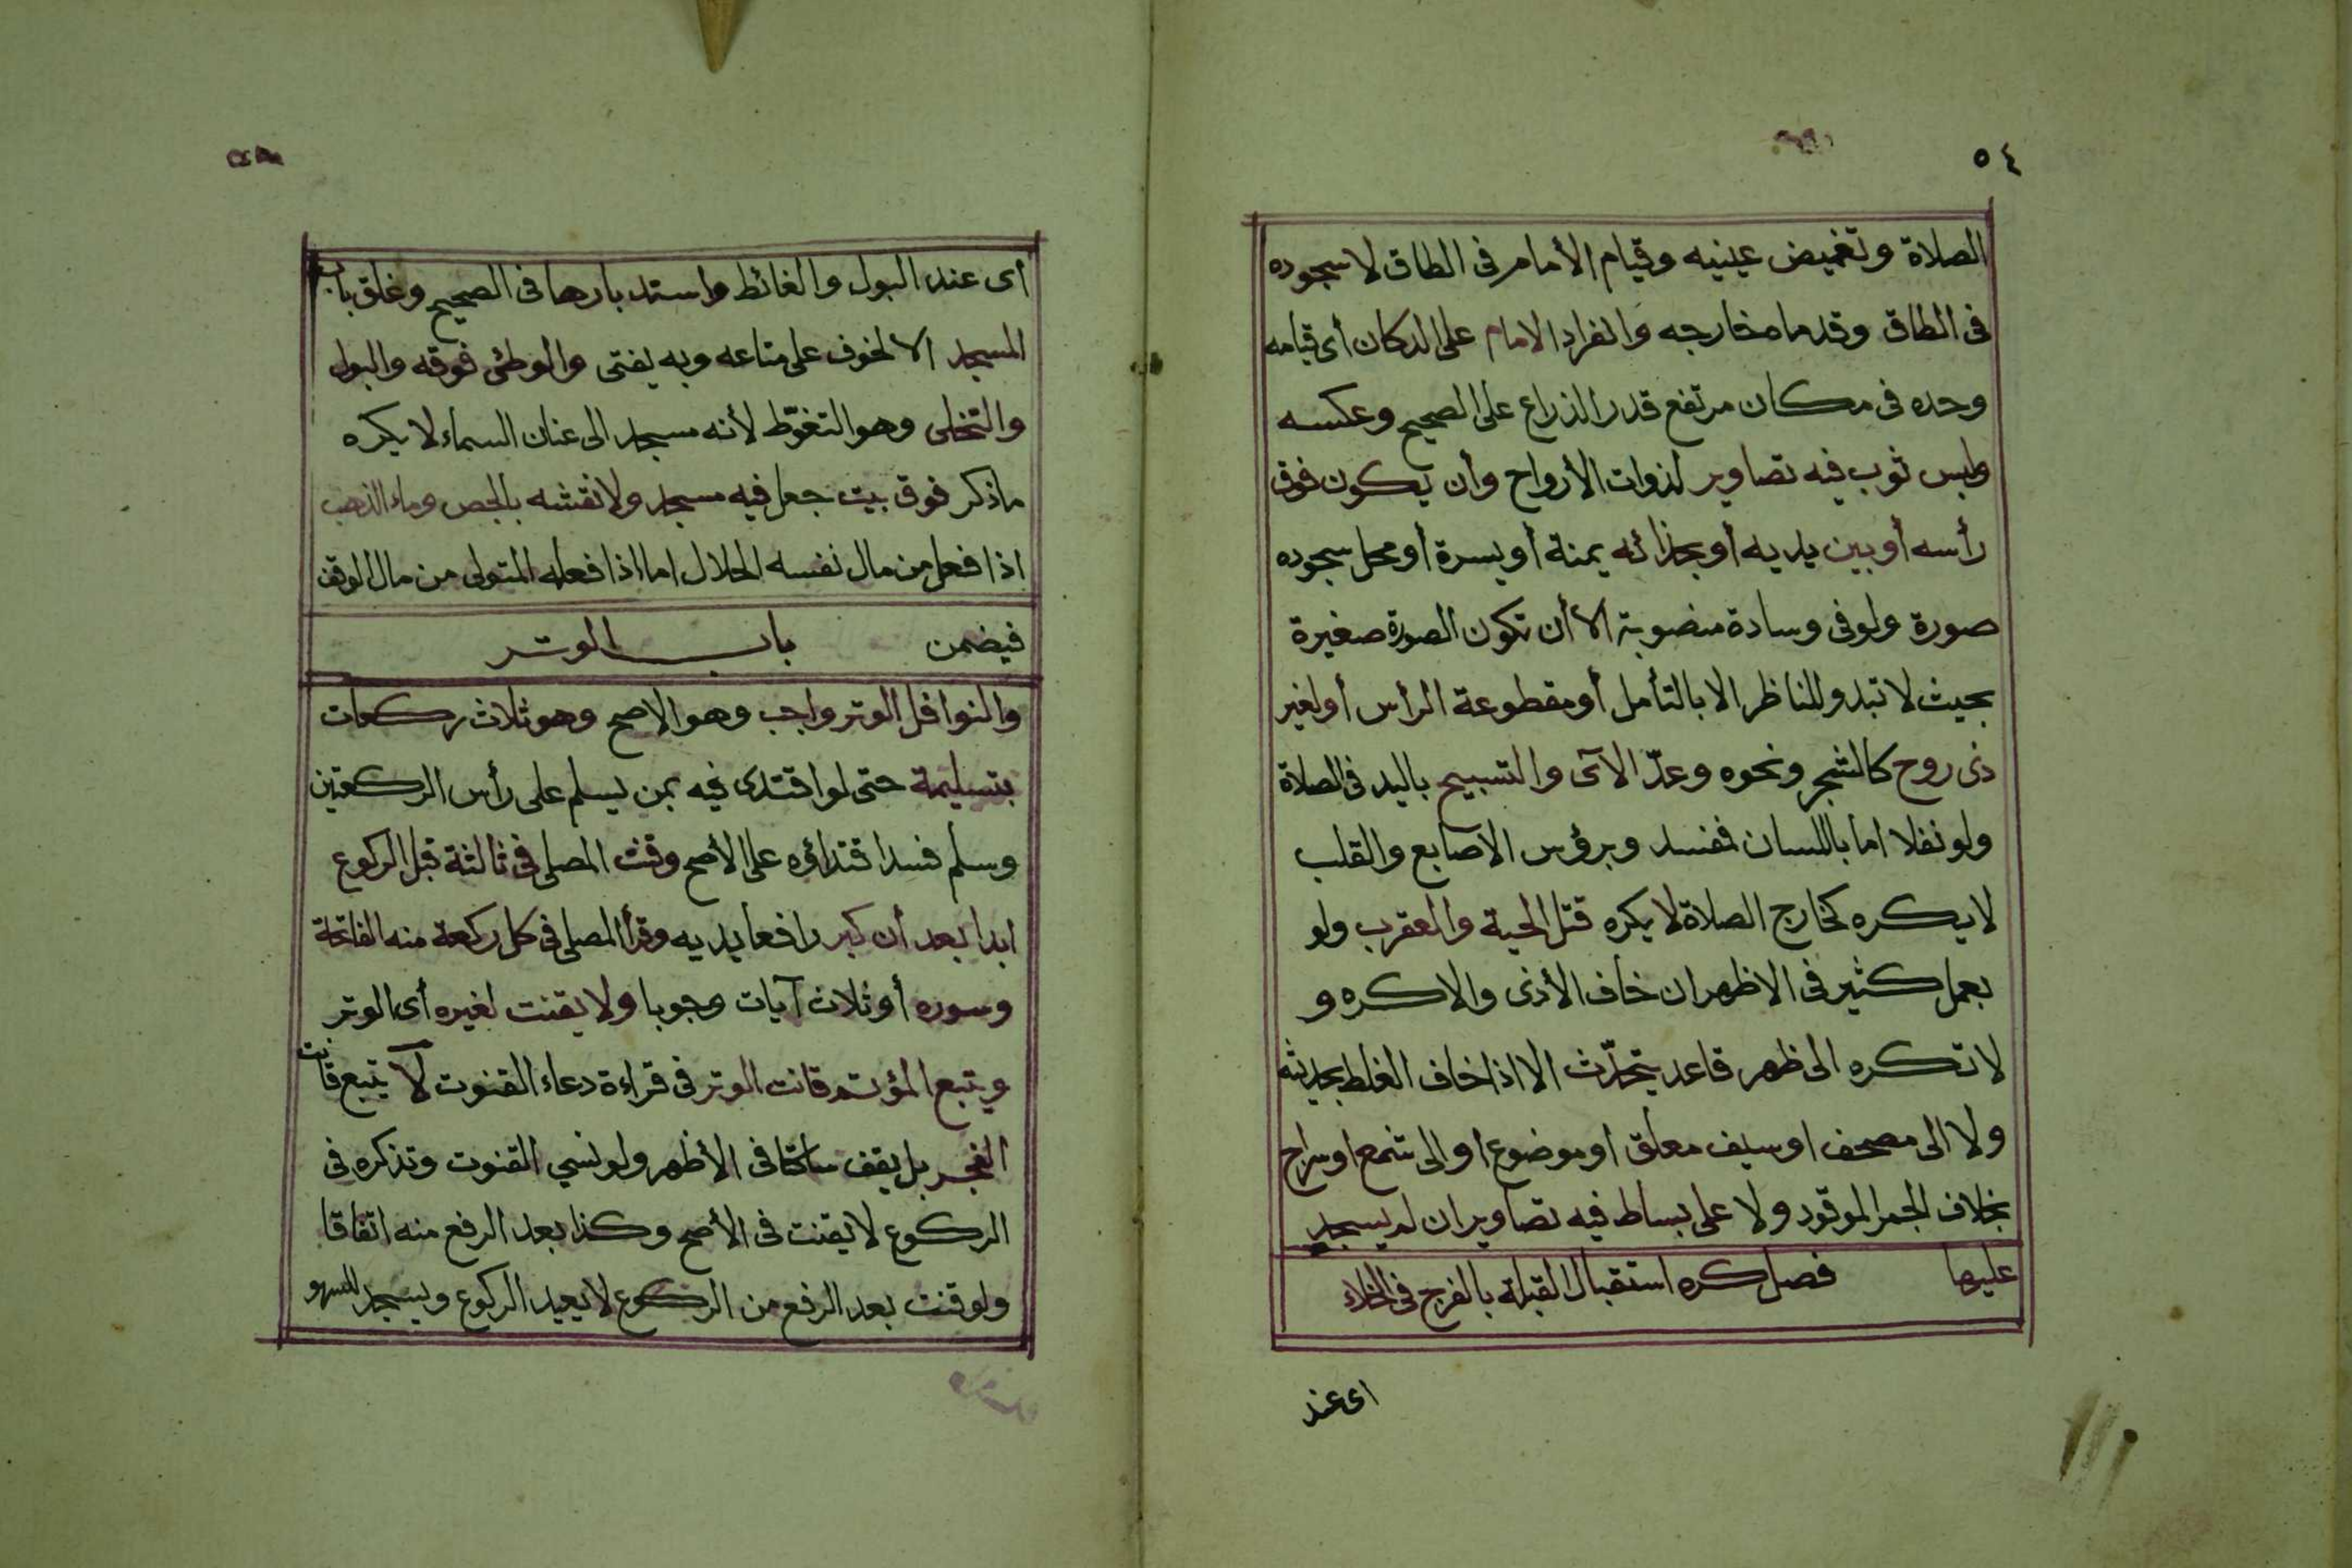 ٥٤
الصلاة وتغميض عينيه وقيام الأمام فى الطاق لا سجوده
فى الطاق وقدماه خارجه وانفراد الامام على الدكان أى قيامه
وحده فى مكان مرتفع قدر الذراع على الصحيح وعكسه
ولبس ثوب فيه تصاوير لذوات الأرواح وأن يكون فوق
رأسه أو بين يديه أو بحذائه يمنة أو يسرة أو محل سجوده
صورة ولو فى وسادة منصوبة الا أن تكون الصورة صغيرة
بحيث لا تبدو للناظر الا بالتأمل أو مقطوعة الرأس أو لغير
ذى روح كالشجر ونحوه وعدّ الآى والتسبيح باليد فى الصلاة
ولو نفلا اما باللسان فمفسد وبرؤس الاصابع والقلب
لا يكره كخارج الصلاة لا يكره قتل الحية والعقرب ولو
بعمل كثير فى الاظهر ان خاف الأذى والا كره و
لا تكره الى ظهر قاعد يتحدّث الا اذا خاف الغلط بحديثه
ولا الى مصحف او سيف معلق او موضوع او الى شمع او سراج
بخلاف الجمر الموقود ولا على بساط فيه تصاوير ان لم يسجد
عليها فصل كره استقبال القبلة بالفرج فى الخلاء
اى عند
أى عند البول والغائط واستدبارها فى الصحيح وغلق باب
المسجد الا لخوف على متاعه وبه يفتى والوطئ فوقه والبول
والتخلى وهو التغوّط لأنه مسجد الى عنان السماء لا يكره
ما ذكر فوق بيت جعل فيه مسجد ولا نقشه بالجص وماء الذهب
اذا فعل من مال نفسه الحلال اما اذا فعله المتولى من مال الوقف
فيضمن باب الوتر
والنوافل الوتر واجب وهو الاصح وهو ثلاث ركعات
بتسليمة حتى لو اقتدى فيه بمن يسلم على رأس الركعتين
وسلم فسد اقتداؤه على الأصح وقنت المصلى فى ثالثة قبل الركوع
ابدا بعد أن كبر رافعا يديه وقرأ المصلى فى كل ركعة منه الفاتحة
وسوره أو ثلاث آيات وجوبا ولا يقنت لغيره أى الوتر
ويتبع المؤتم قانت الوتر فى قراءة دعاء القنوت لا يتبع قانت
الفجر بل يقف ساكتا فى الأظهر ولو نسي القنوت وتذكره فى
الركوع لا يقنت فى الأصح وكذا بعد الرفع منه اتفاقا
ولو قنت بعد الرفع من الركوع لا يعيد الركوع ويسجد للسهو